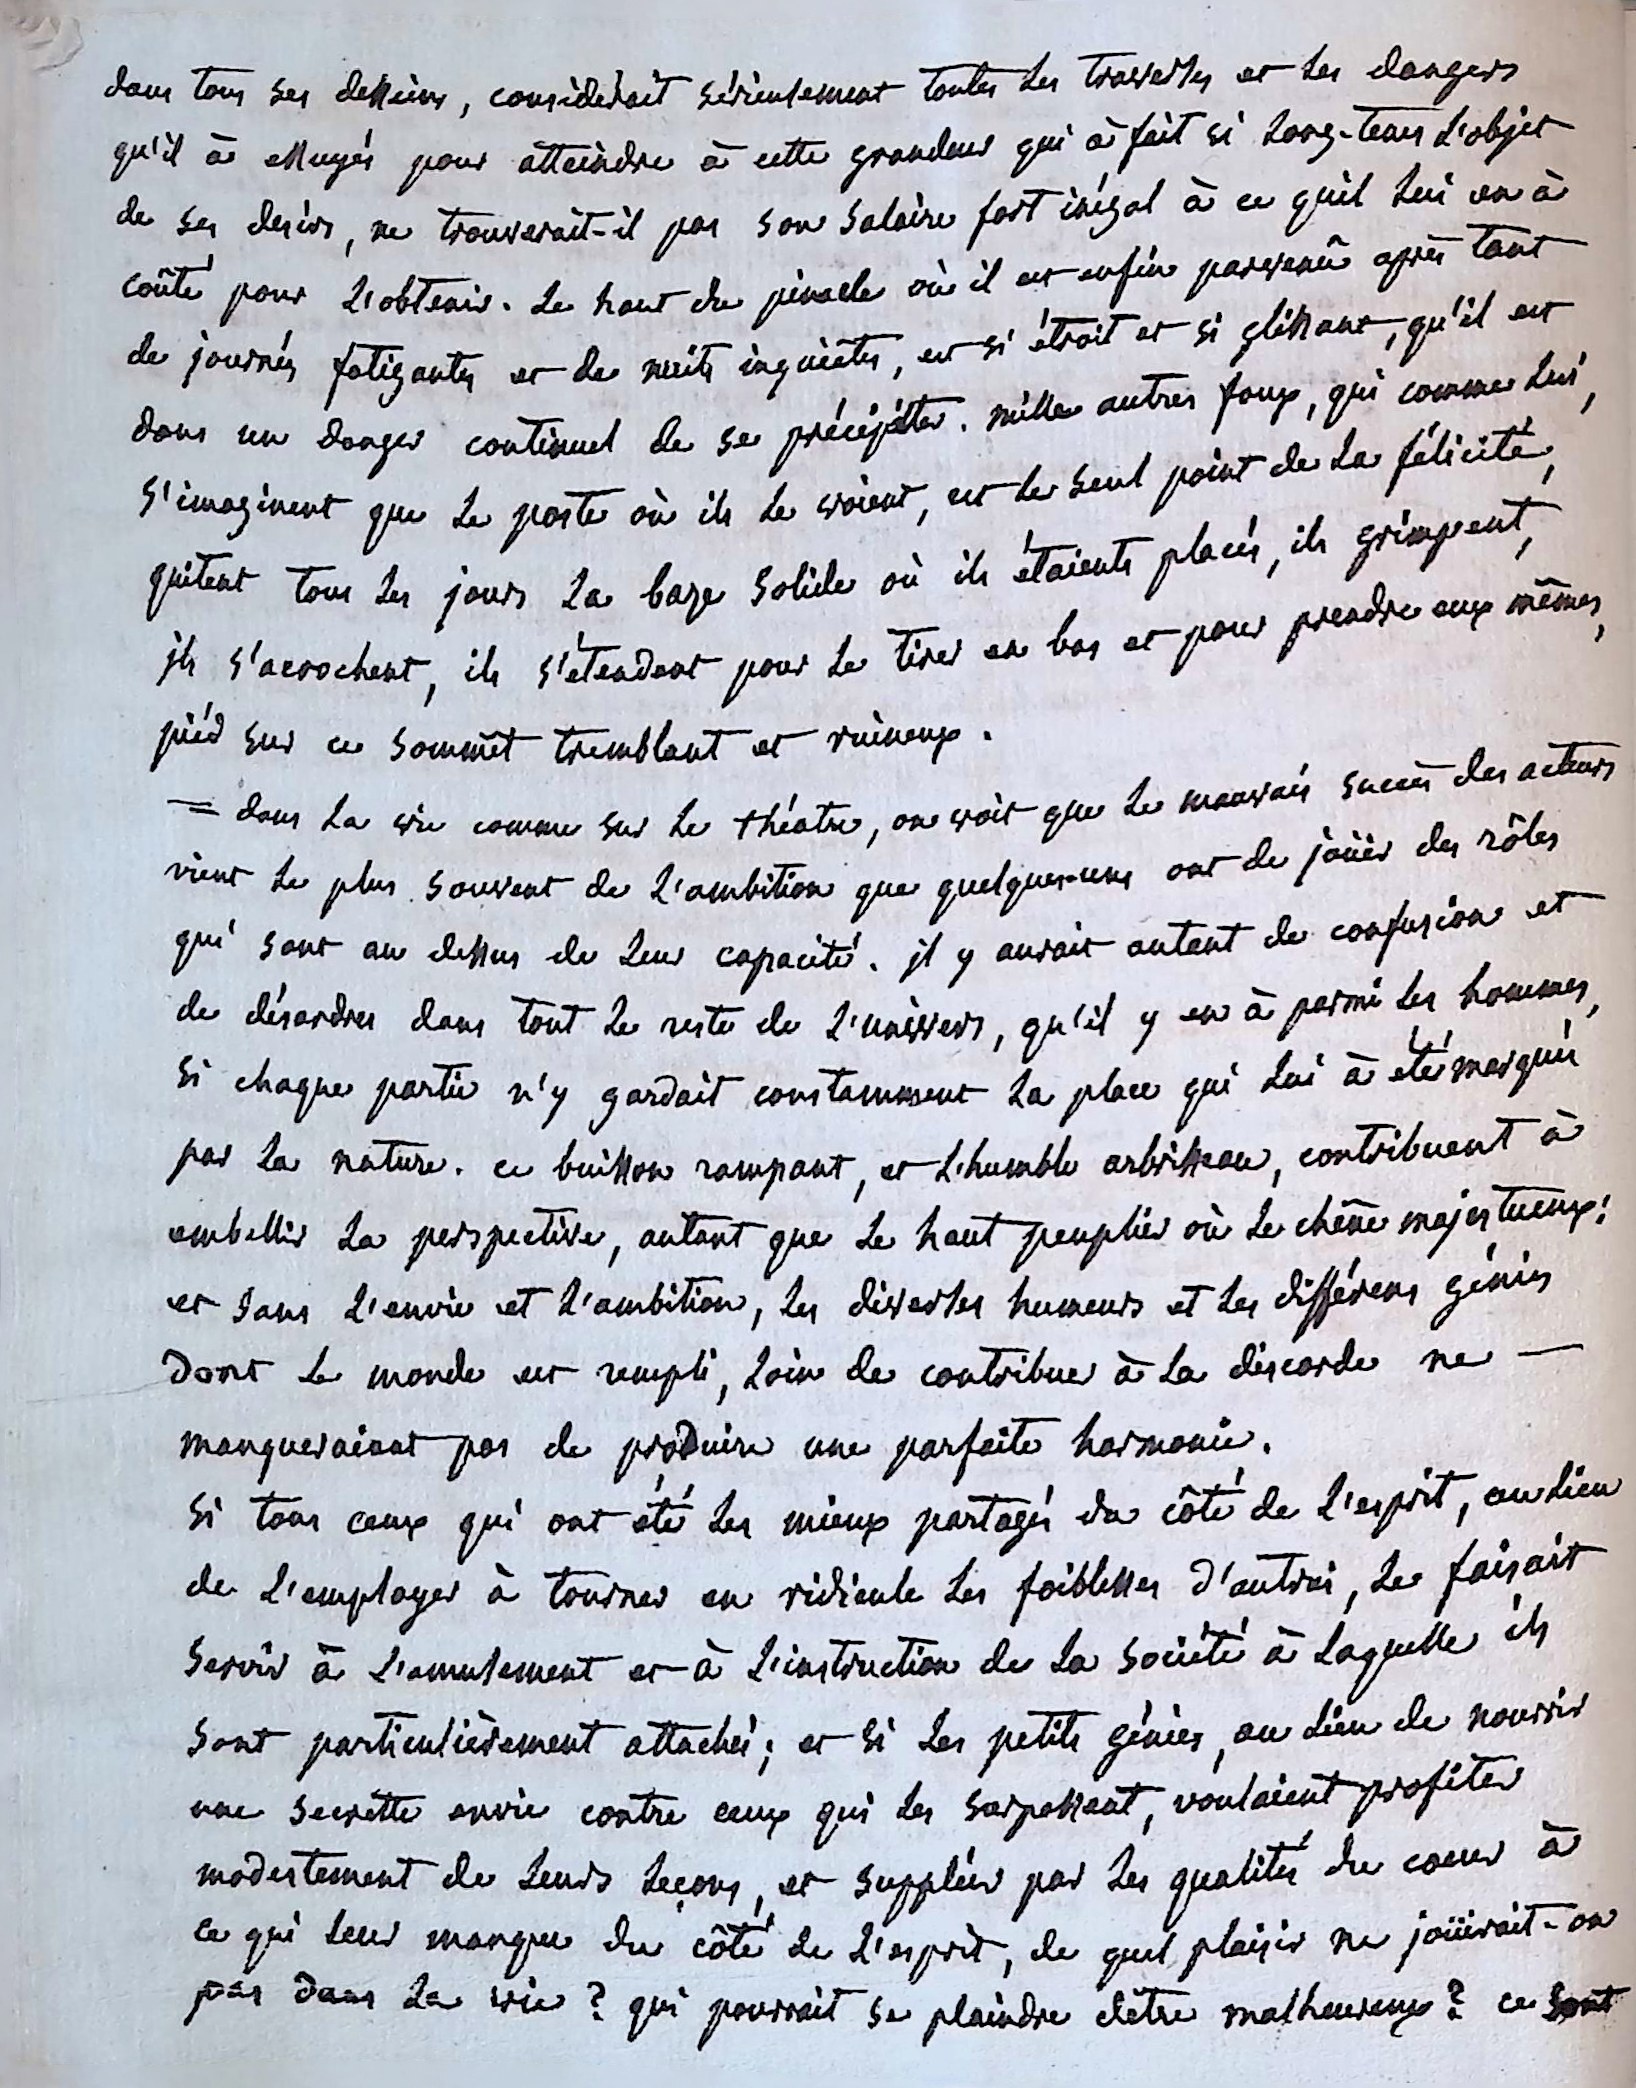 dans tous ses desseins, considérait sérieusement toutes les traverses et les dangers
qu'il à essuyés pour atteindre à cette grandeur qui à fait si long-tems l'objet
de ses desirs, ne trouverait-il pas son salaire fort inégal à ce qu'il lui en à
coûté pour l'obtenir. Le haut du pinacle où il est enfin parvenû après tant
de journés fatigantes et de nuits inquiètes, est si étroit et si glissant, qu'il est
dans un danger continuel de se précipiter. mille autres foux, qui comme lui,
s'imaginent que le poste où ils le voient, est le seul point de la félicité,
quitent tous les jours la baze solide où ils étaients placés, ils grimpent,
ils s'acrochent, ils s'étendent pour le tirer en bas et pour prendre eux mêmes,
piéd sur ce sommêt tremblant et ruineux.
= dans la vie comme sur le théatre, on voit que le mauvais succès des acteurs
vient le plus souvent de l'ambition que quelques-uns ont de joüer des rôles
qui sont au dessus de leur capacité. il y aurait autant de confusion et
de désordres dans tout le reste de l'univers, qu'il y en à parmi les hommes,
si chaque partie n'y gardait constamment la place qui lui à été marquée
par la nature. ce buisson rampant, et l'humble arbrisseau, contribuent à
embellir la perspective, autant que le haut peuplier où le chêne majestueux:
et sans l'envie et l'ambition, les diverses humeurs et les différens génies
dont le monde est rempli, loin de contribuer à la discorde ne —
manqueraient pas de produire une parfaite harmonie.
Si tous ceux qui ont été les mieux partagés du côté de l'esprit, au lieu
de l'employer à tourner en ridicule les foiblesses d'autrui, le faisait
servir à l'amusement et à l'instruction de la société à laquelle ils
sont particulièrement attachés; et si les petits génies, au lieu de nourrir
une secrette envie contre ceux qui les surpassent, voulaient profiter
modestement de leurs leçons, et suppléer par les qualités du coeur à
ce qui leur manque du côté de l'esprit, de quel plaisir ne joüirait-on
pas dans la vie? qui pourrait se plaindre d'être malheureux? ce sont